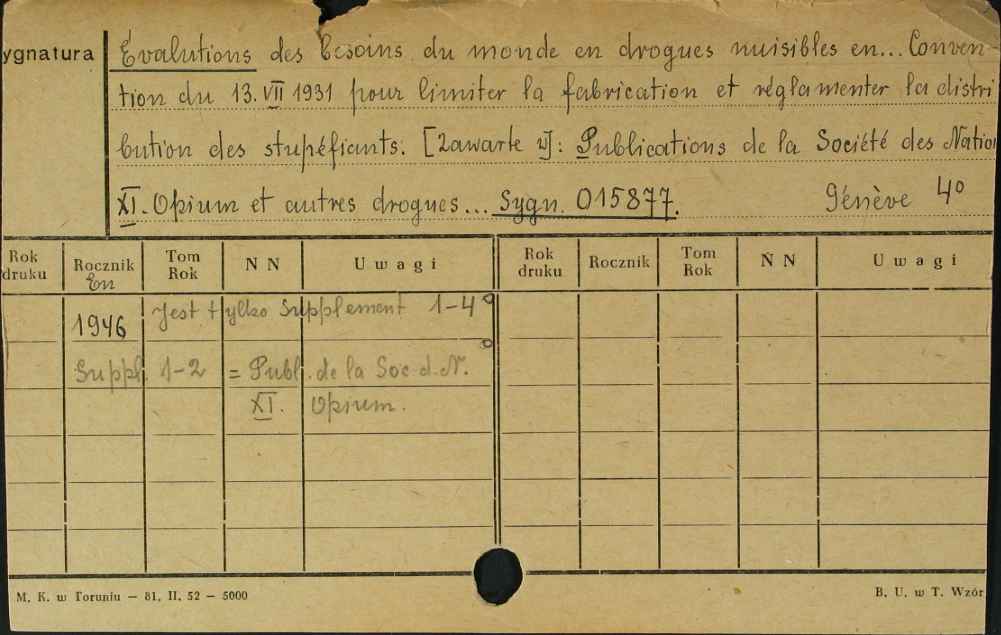 ygnatura
Évalutions des besoins du monde en drogues nuisibles en... Conven-
tion du 13. VII 1931 pour limiter la fabrication et réglamenter la distri
bution des stupéfiants. [Zawarte w]: Publications de la Société des Natio
XI. Opium et autres drogues... Sygn. 015877. Génève 4°
Rok druku Rocznik Tom Rok N N Uwagi Rok druku Rocznik Tom Rok N N Uwagi
En
1946 Jest tylko Supplement 1-4
Suppl. 1-2 = Publ. de la Soc. d. N.
XI. Opium.
M. K. w Toruniu — 81, II, 52 — 5000 B. U. w T. Wzór